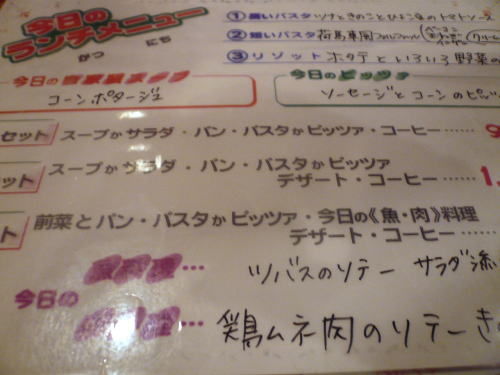 今日の
ランチメニュー
がつ にち
①細いパスタ ツナときのことひよこ豆のトマトソース
②短いパスタ 有馬専用
クリーム
③リゾット ホタテといろいろ野菜の
今日の
コーンポタージュ
今日のピッツァ
ソーセージとコーンのピッ
セット スープかサラダ・パン・パスタかピッツァ・コーヒー……
ット スープかサラダ・パン・パスタかピッツァ
デザート・コーヒー……1,
ト 前菜とパン・パスタかピッツァ・今日の《魚・肉》料理
デザート・コーヒー……
魚料理… ツバスのソテー サラダ添
今日の
肉料理… 鶏ムネ肉のソテーき